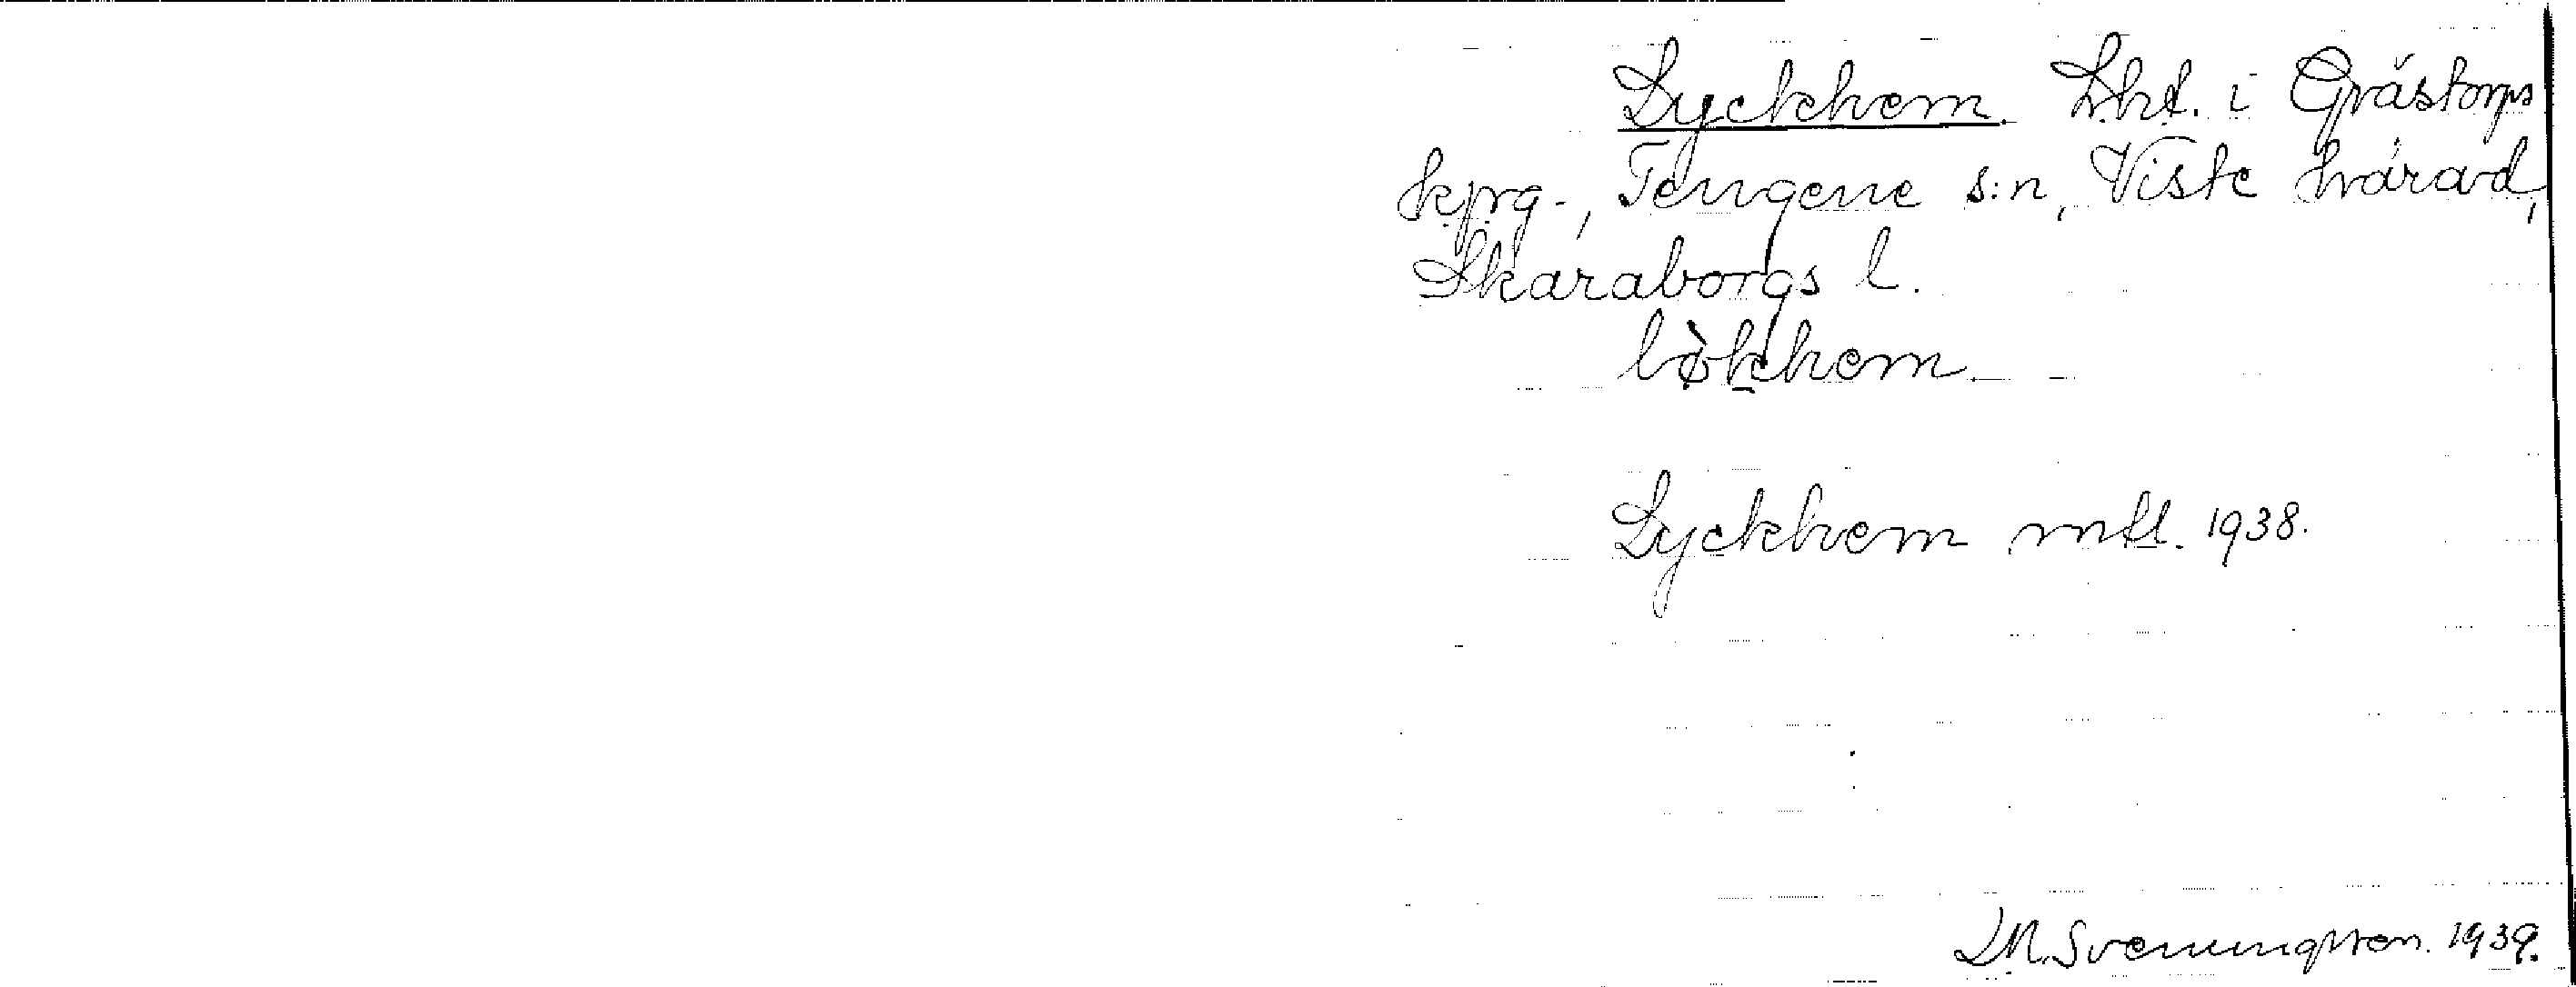 Lyckhem. Lht. i Grästorps
kpg., Tengene s:n, Viste härad,
Skaraborgs l.
lø̀khem
Lyckhem mtl. 1938.
M. Svenungsson. 1939.